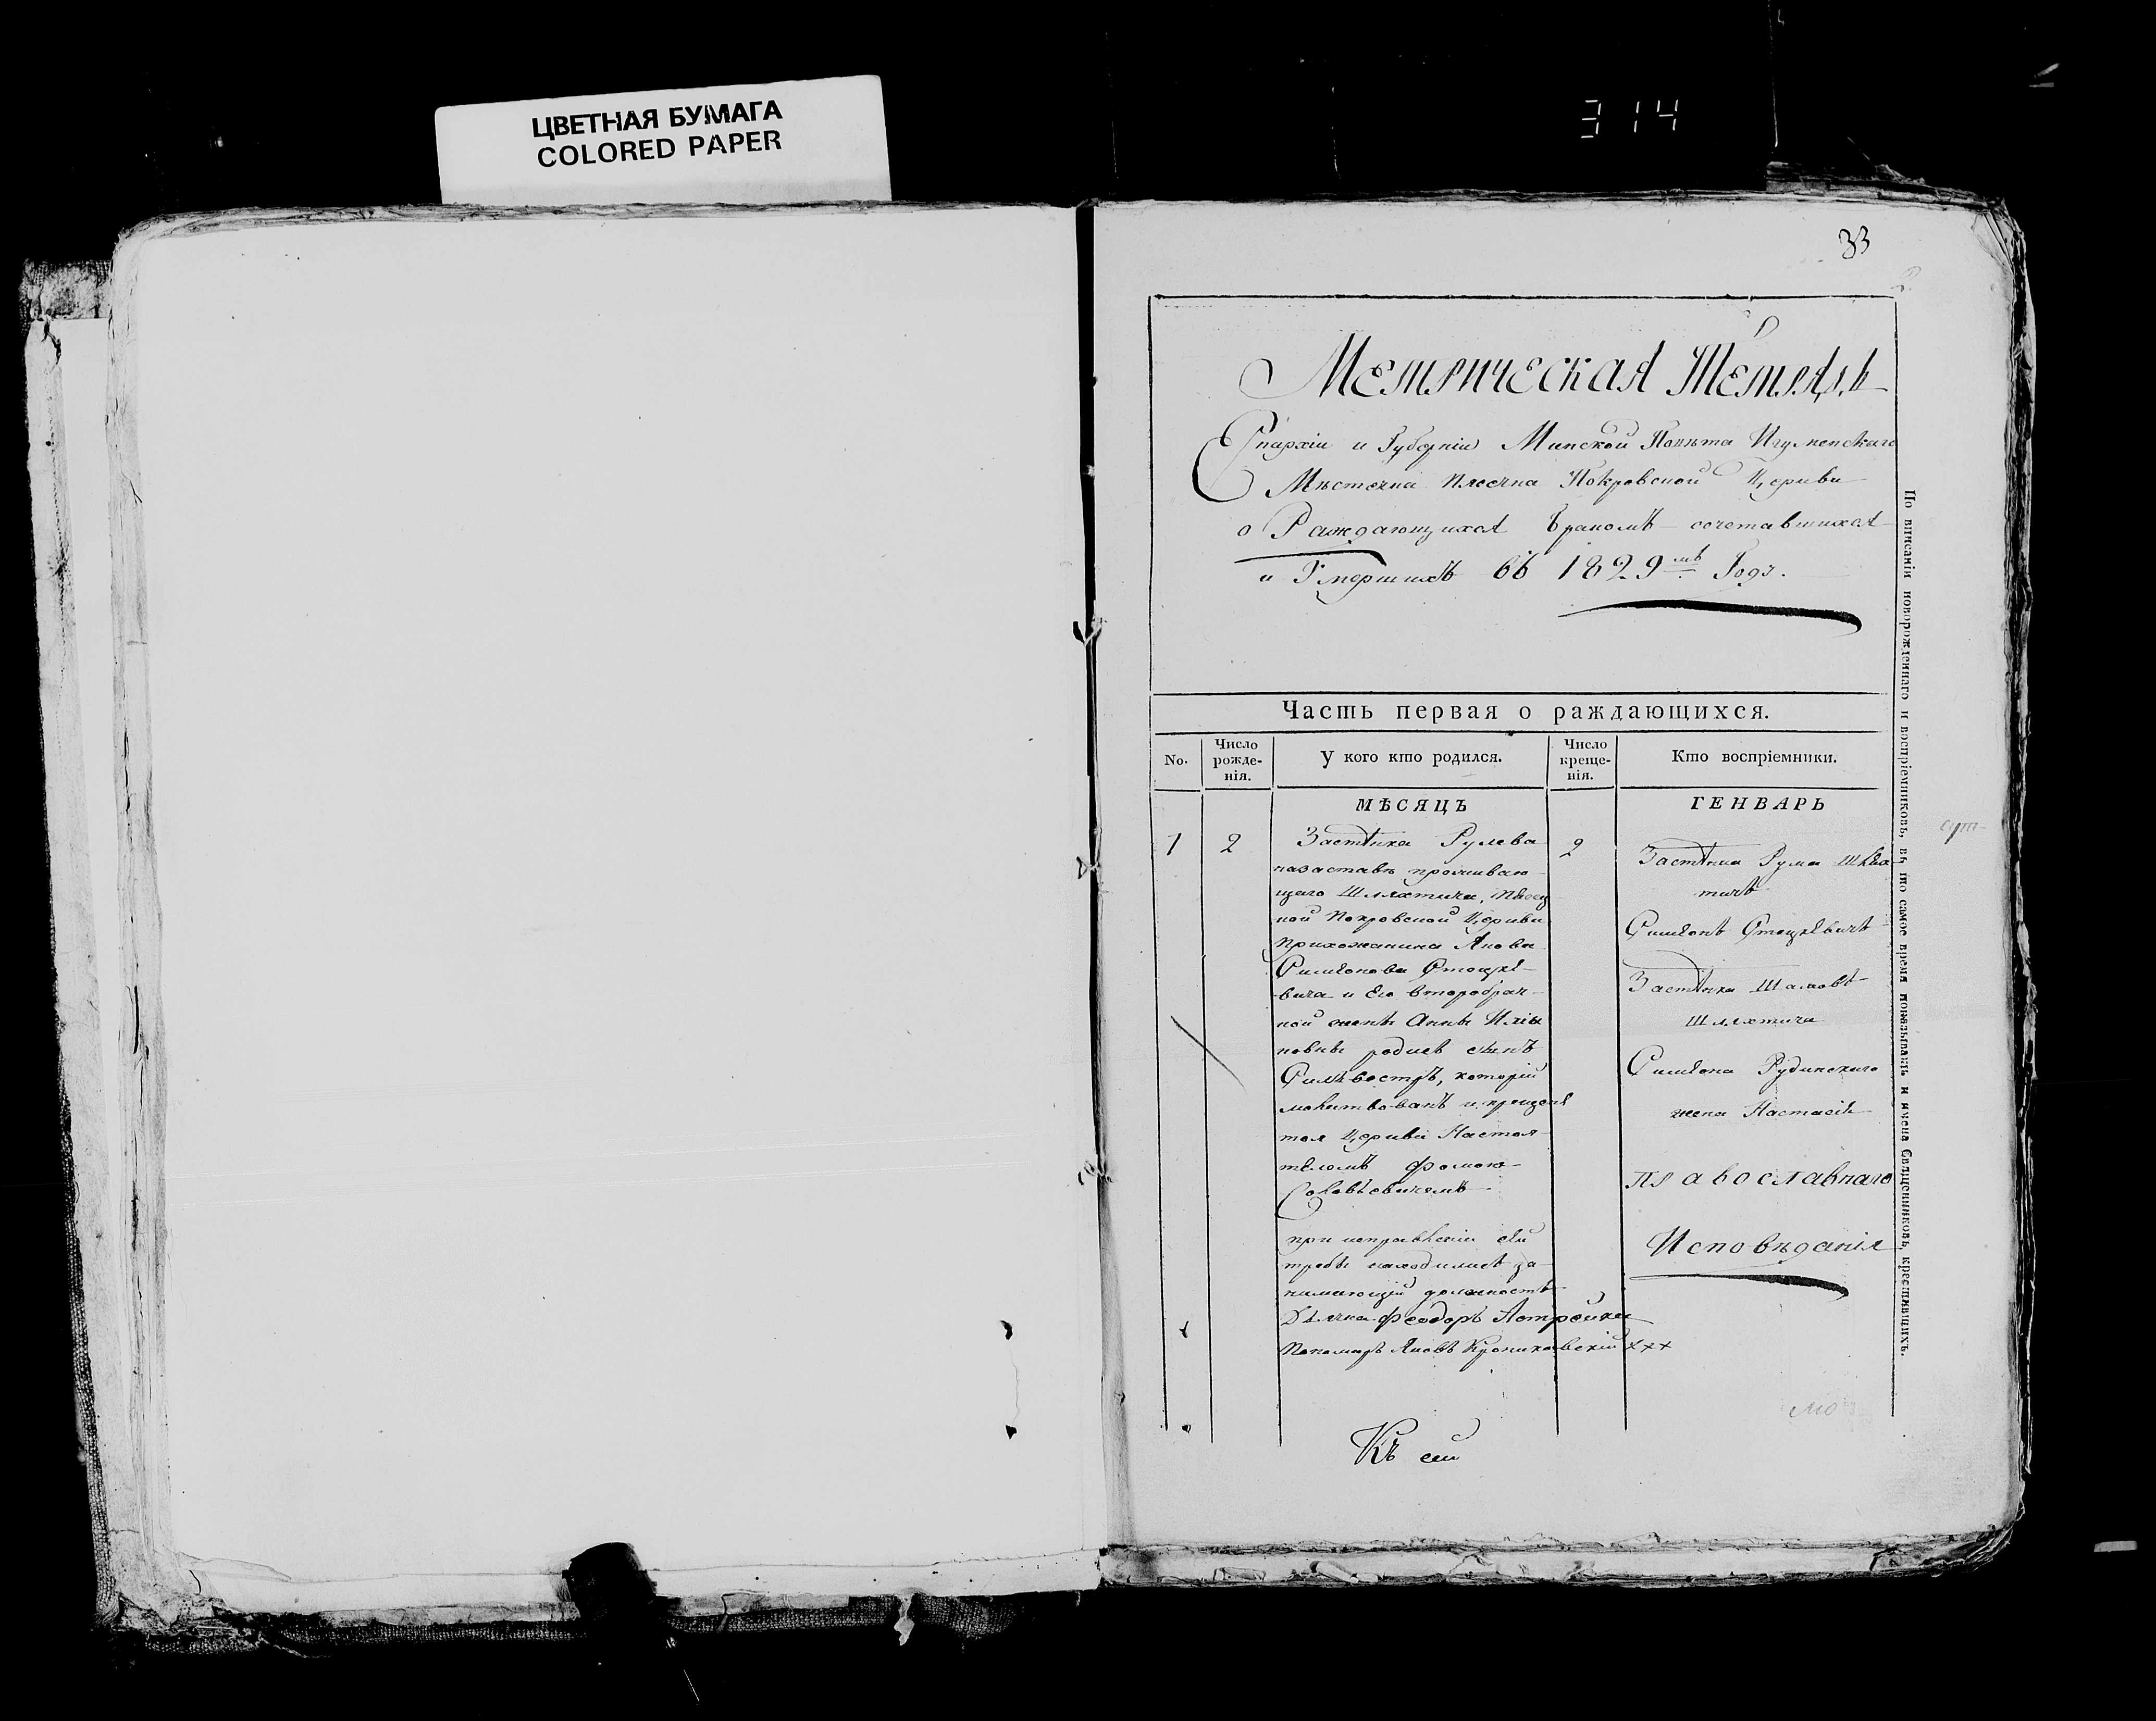 ЦВЕТНАЯ БУМАГА
COLORED PAPER
314
33
Метрическая Тетрадь
Епархіи и Губерніи Минской Повѣта Игуменскаго
Мѣстечка Плесчна Покровской Церкви
о Раждающихся бракомъ сочетавшихся
и Умершихъ въ 1829мъ Годѣ.
Часть первая о раждающихся.
No.
Число рожде-нія.
У кого кто родился.
Число креще-нія.
Кто воспріемники.
МѢСЯЦЪ ГЕНВАРЬ
1
2
Застѣнка Рулева
назаставѣ проживаю-
щаго Шляхтича,
ной Покровской Церкви
прихожанина Якова
Симеонова Стоцке-
вича и его второбрач-
ной жены Анны Иліи
новны родися сынъ
Силѣвестръ, которій
молитвованъ и крещенъ
тоя Церкви Настоя-
телемъ Фомою
Соловьевичемъ
при исправленіи сей
требы находились за-
нимающій должность
Дьячка Феодоръ Астрейко
Пономаръ Яковъ Крониковскій ххх
2
Застѣнка Рулева Шлях
тичъ
Симеонъ Стоцкевичъ
Застѣнка
Шляхтича
Симеона Рудинскаго
жена Настасія
православнаго
Исповѣданія
Къ сей
По вписаніи новорожденнаго и воспріемниковъ, въ то самое время показывать и имена Священниковъ, крестившихъ.